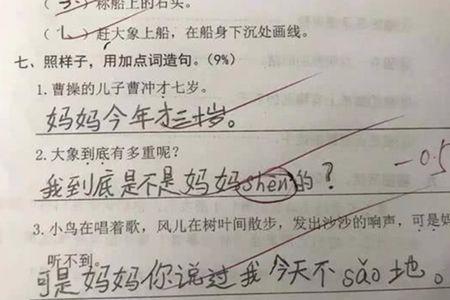 (3)称船上的石头。
(1)赶大象上船，在船身下沉处画线。
七、照样子，用加点词造句。(9%)
1.曹操的儿子曹冲才七岁。
妈妈今年才三十岁。
2.大象到底有多重呢？
我到底是不是妈妈shēn的？
-0.5
3.小鸟在唱着歌，风儿在树叶间散步，发出沙沙的响声，可是妈
听不到。
可是妈妈你说过我今天不sǎo地。